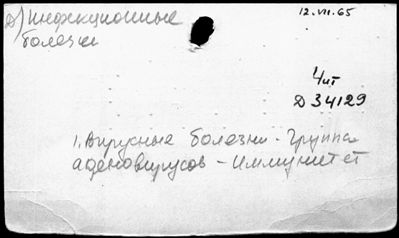 д) Инфекционные
болезни
12.VII.65
Чит
Д 34129
1. Вирусные болезни - Группа
аденовирусов - Иммунитет